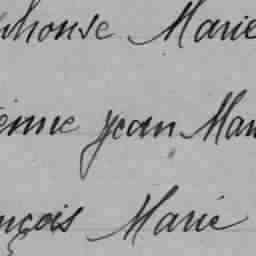 phonse Marie
ienne Jean Mar
nçois Marie